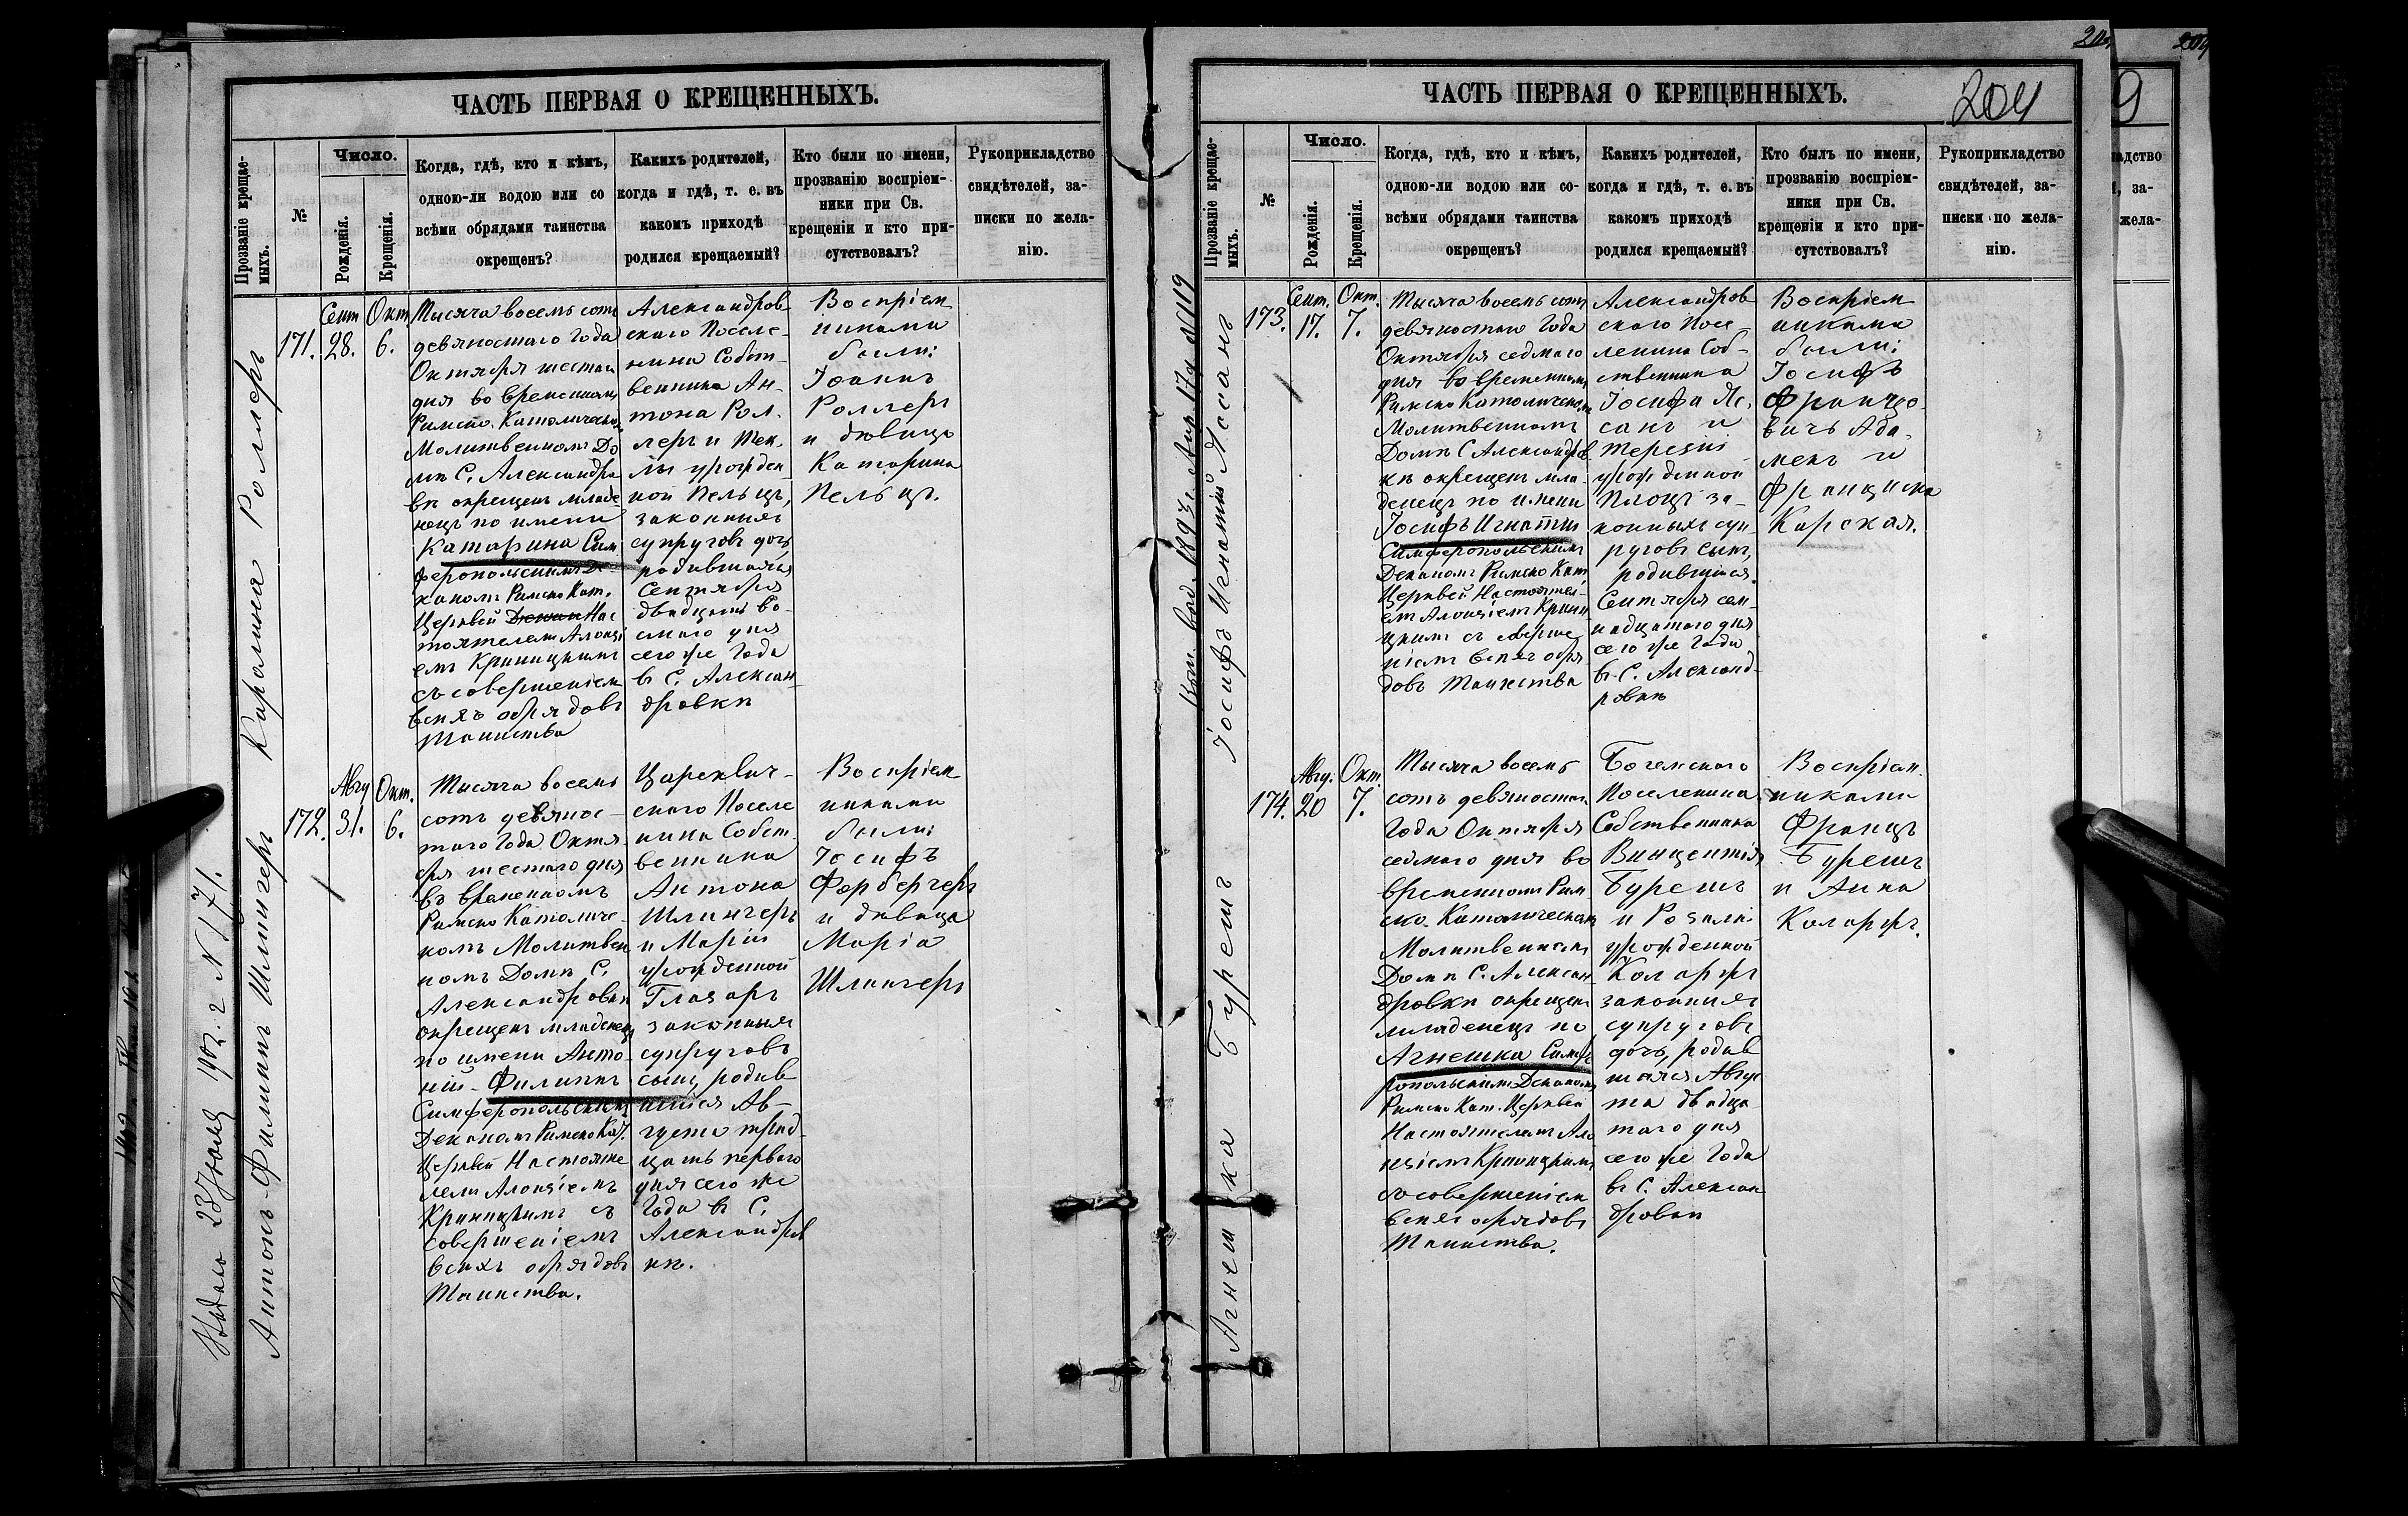 ЧАСТЬ ПЕРВАЯ О КРЕЩЕННЫХЪ.
Прозваніе крещае-
мыхъ.
№
Число.
Рожденія.
Крещенія.
Когда, гдѣ, кто и кѣмъ,
одною-ли водою или со
всѣми обрядами таинства
окрещенъ?
Какихъ родителей,
когда и гдѣ, т. е. въ
какомъ приходѣ
родился крещаемый?
Кто были по имени,
прозванію воспріем-
ники при Св.
крещеніи и кто при-
сутствовалъ?
Рукоприкладство
свидѣтелей, за-
писки по жела-
нію.
171.
Сент
28.
Окт
6.
Тысяча восемь сотъ
девяностаго Года
Октября шестаго
дня во временномъ
Римско-Католическо
Молитвенномъ До
мѣ С. Александро
вкѣ окрещенъ младе
нецъ по имени
Катарина Сим
феропольскимъ Де
каномъ Римско Кат.
Церквей Нас
тоятелемъ Алоизі
емъ Криницкимъ
съ совершеніемъ
всѣхъ обрядовъ
Таинства
Александров
скаго Поселе-
нина Собст-
венника Ан-
тона Рол-
леръ и Тек-
лы урожден
ной Пельцъ,
законныхъ
супруговъ дочь
родившаяся
Сентября
двадцать во-
смого дня
сего же Года
въ С. Алексан-
дровкѣ
Воспріем
никами
были:
Іоаннъ
Роллеръ
и дѣвица
Катарина
Пельцъ.
172.
Авгу
31.
Окт.
6.
Тысяча восемь
сотъ девянос-
таго Года Октя-
бря шестаго дня
въ временномъ
Римско Католиче-
комъ Молитвен
номъ Домѣ С.
Александровкѣ
окрещенъ младенецъ
по имени Анто-
ній - Филиппъ
Симферопольскимъ
Деканомъ Римско Кат.
Церквей Настояте
лемъ Алоизіемъ
Криницкимъ съ
совершеніемъ
всѣхъ обрядовъ
Таинства.
Цареквич-
скаго Поселе
нина Собст-
венника
Антона
Шлингеръ
и Маріи
урожденной
Глазаръ
законныхъ
супруговъ
сынъ, родив
шійся Ав-
густа трид-
цать перваго
дня сего же
Года въ С.
Александров
кѣ.
Воспріем
никами
были:
Іосифъ
Фербергеръ
и дѣвица
Марія
Шлингеръ
Антонъ-Филиппъ Шлингеръ
Выдано 23 Іюля 1902 г N 171.
ЧАСТЬ ПЕРВАЯ О КРЕЩЕННЫХЪ.
204
Прозваніе крещае-
мыхъ.
№
Число.
Рожденія.
Крещенія.
Когда, гдѣ, кто и кѣмъ,
одною-ли водою или со-
всѣми обрядами таинства
окрещенъ?
Какихъ родителей,
когда и гдѣ, т. е. въ
какомъ приходѣ
родился крещаемый?
Кто былъ по имени,
прозванію воспріем-
ники при Св.
крещеніи и кто при-
сутствовалъ?
Рукоприкладство
свидѣтелей, за-
писки по жела-
нію.
173.
Сент.
17.
Окт.
7.
Тысяча восемь сотъ
девяностаго Года
Октября седмаго
дня во временномъ
Римско Католическомъ
Молитвенномъ
Домѣ С Александров
кѣ окрещенъ мла-
денецъ по имени
Іосифъ Игнатій
Симферопольскимъ
Деканомъ Римско Кат
Церквей Настоятел-
емъ Алоизіемъ Крини
цкимъ съ соверше
ніемъ всѣхъ обря
довъ Таинства
Александров
скаго Посе
ленина Соб-
ственника
Іосифа Яс.
санъ и
Терезіи
урожденной
Плоцъ за-
конныхъ суп
руговъ сынъ,
родившійся
Сентября сем-
надцатаго дня
сего же Года
въ С. Александ-
ровкѣ
Воспріем
никами
были:
Іосифъ
Францо-
вичъ Ада-
мекъ и
Франциска
Карская.
Іосифъ Игнатій Яссанъ
174.
Авгу.
20
Окт
7.
Тысяча восемь
сотъ девяностаго
Года Октября
седмаго дня во
временномъ Рим
ско Католическомъ
Молитвенномъ
Домѣ С. Алексан-
дровкѣ окрещенъ
младенецъ по
Агнешка Симфе
ропольскимъ Деканомъ
Римско Кат. Церквей
Настоятелемъ Ало
изіемъ Криницкимъ
съ совершеніемъ
всѣхъ обрядовъ
Таинства.
Богемского
Поселенина
Собственника
Винцентія
Бурешъ
и Розаліи
урожденной
Коларжъ
законныхъ
супруговъ
дочь, родив
шаяся Авгус
та двадца
таго дня
сего же Года
въ С. Алексан
дровкѣ
Воспріем
никами
Францъ
Бурешъ
и Анна
Коларжъ.
Агнешка Бурешъ